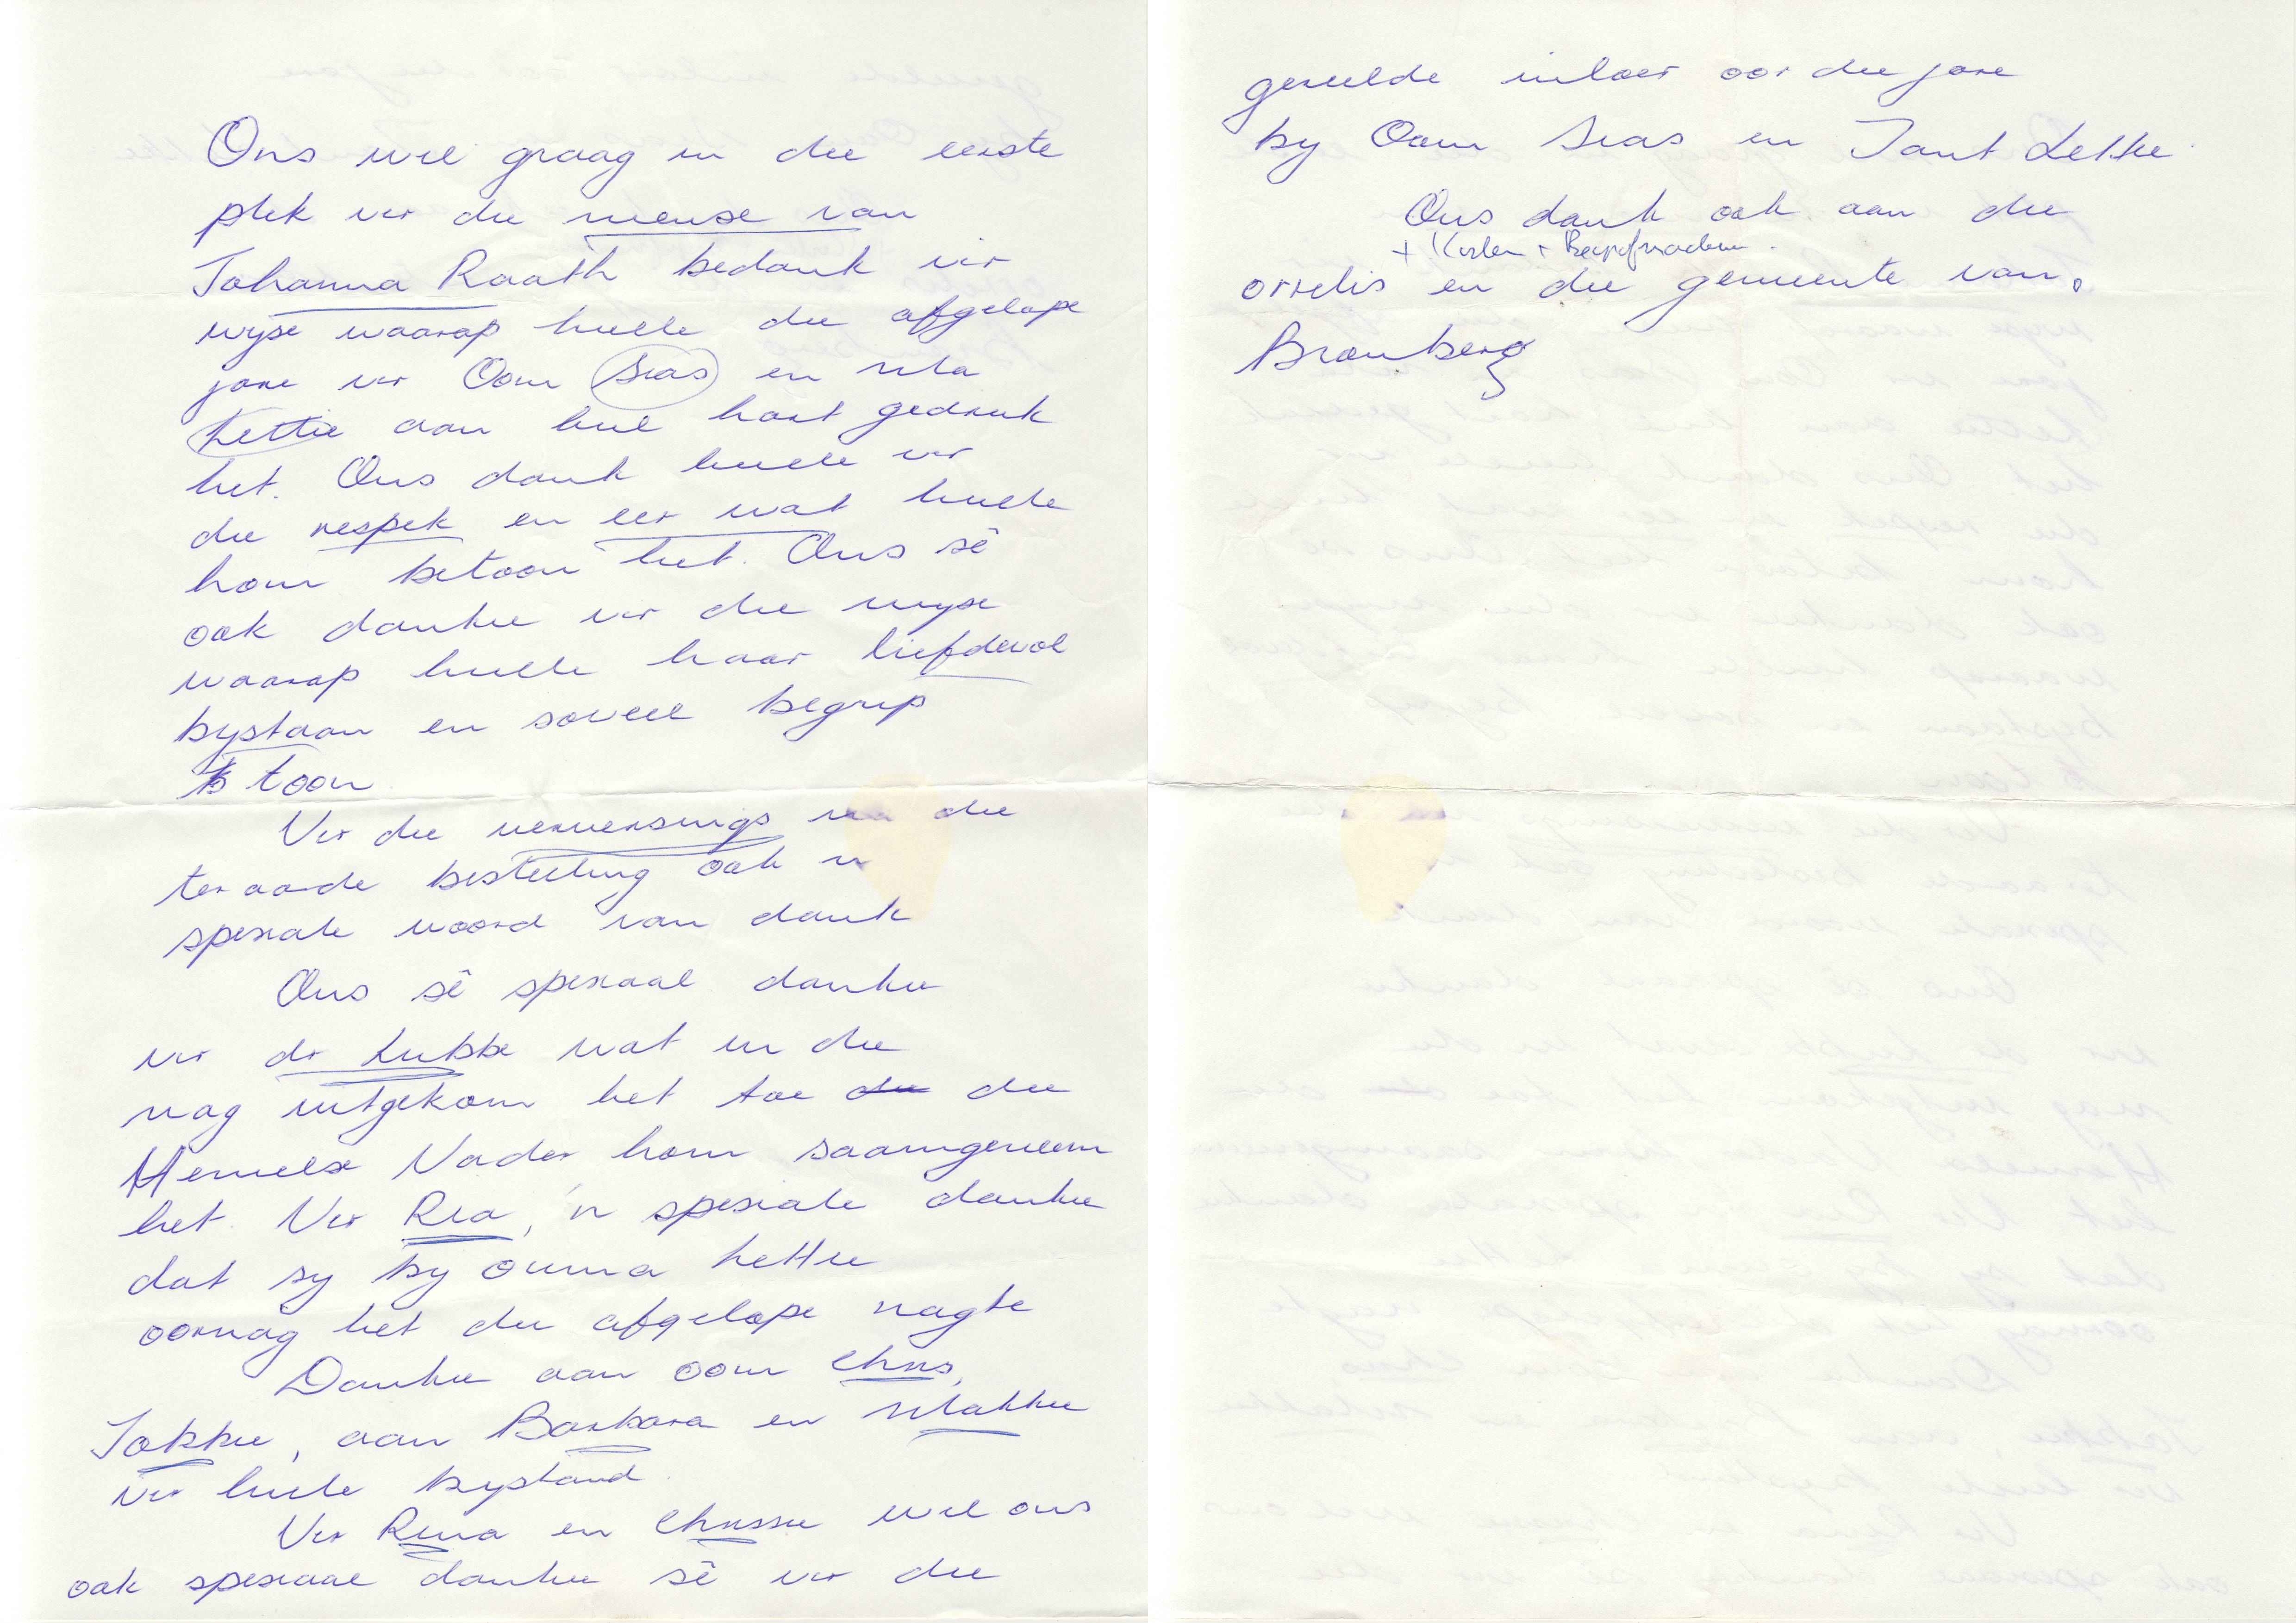 Ons wil graag in die eerste
plek vir die mense van
Johanna Raath bedank vir
wyse waarop hulle die afgelope
jare vir Oom Sias en Ma
Lettie aan hul hart gedruk
het. Ons dank hulle vir
die respek en eer wat hulle
hom betoon het. Ons sê
ook dankie vir die wyse
waarop hulle haar liefdevol
bystaan en soveel begrip
toon
Vir die verversings na die
ter aarde bestelling ook 'n
spesiale woord van dank
Ons sê spesiaal dankie
vir dr Lubbe wat in die
nag uitgekom het toe die die
Hemelse Vader hom saamgeneem
het. Vir Ria, 'n spesiale dankie
dat sy by ouma Lettie
oornag het die afgelope nagte
Dankie aan oom Chris,
Jakkie, aan Barbara en Makkie
vir hulle bystand.
Vir Rina en Chrissie wil ons
ook spesiaal dankie sê vir die
gereelde inloer oor die jare
by Oom Sias en Tant Lettie.
Ons dank ook aan die
+ Koster + Begrafnisdiens.
orrelis en die gemeente van
Bronberg